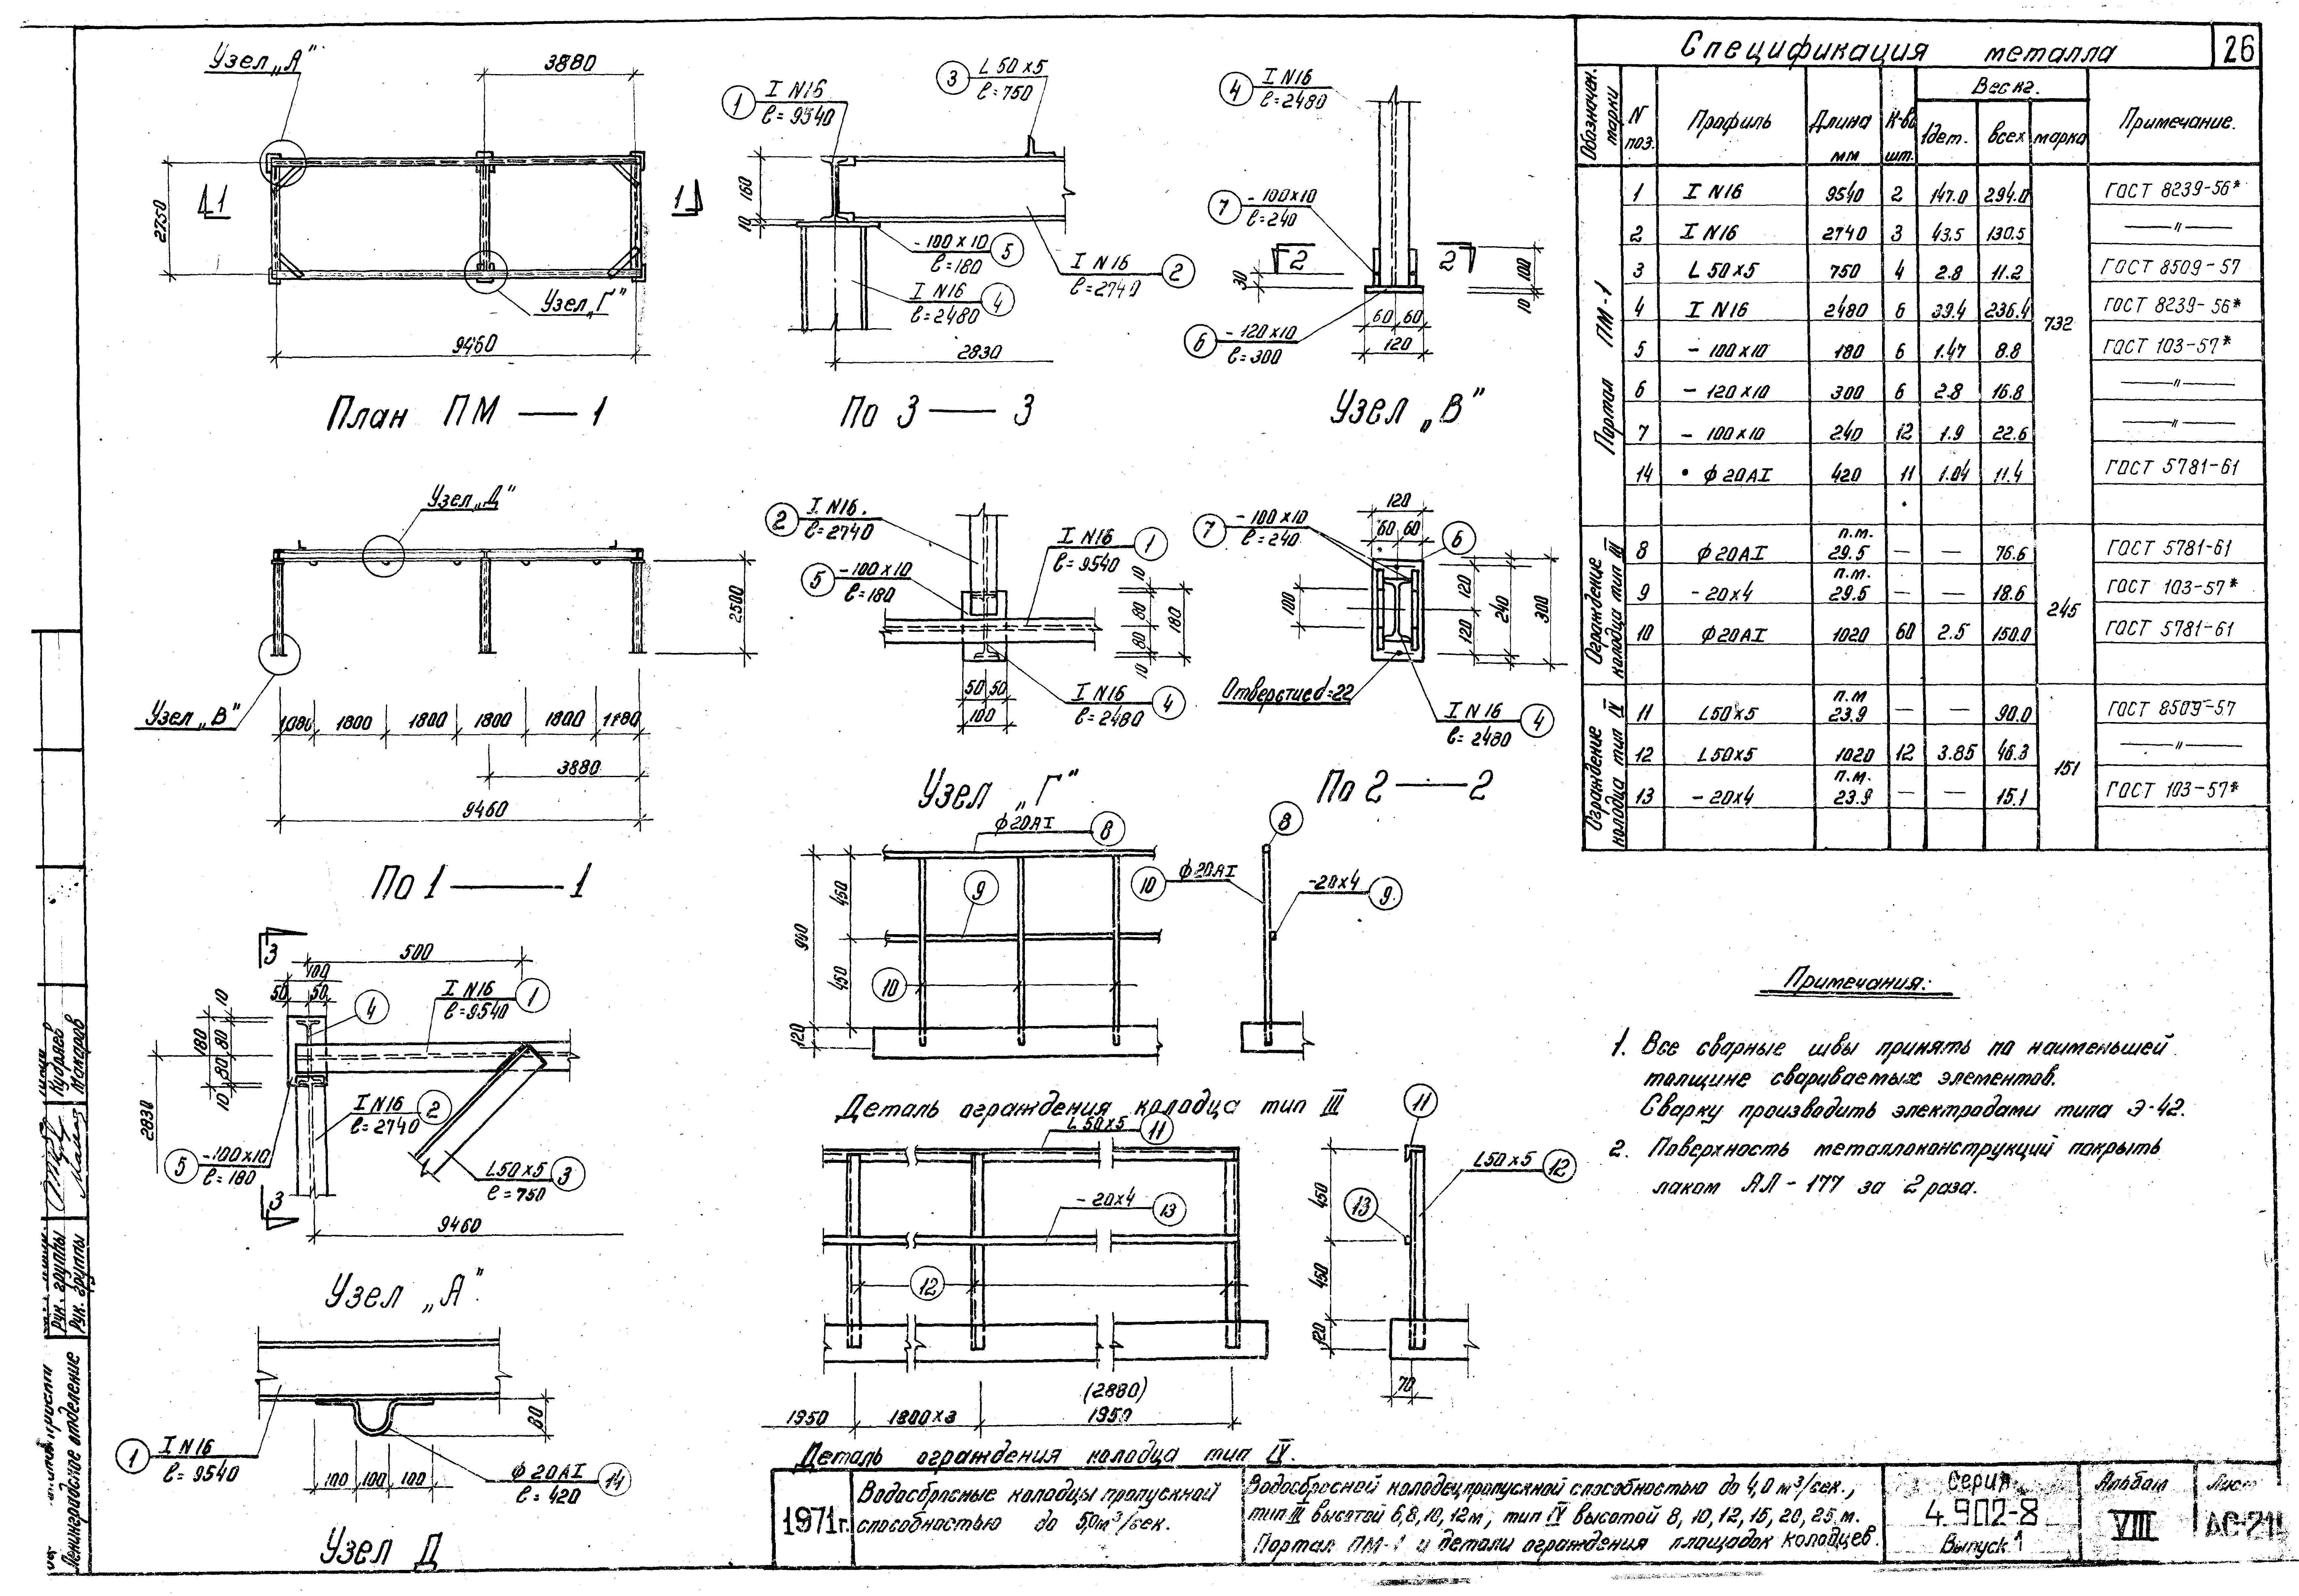 Узел „А"
3880
2750
1
1
Узел „Г"
9460
План ПМ — 1
1 I N16
ℓ=9540
3 L 50×5
ℓ=750
160
10
-100×10 5
ℓ=180
I N16 2
ℓ=2740
I N16 4
ℓ=2480
2830
По 3 — 3
4 I N16
ℓ=2480
7 -100×10
ℓ=240
2 2
30
100
10
60 60
120
6 -120×10
ℓ=300
Узел „В"
Узел „Д"
2500
Узел „В"
1080 1800 1800 1800 1800 1180
3880
9460
По 1 — 1
2 I N16.
ℓ=2740
I N16 1
ℓ=9540
5 -100×10
ℓ=180
10
80
80
10
180
50 50
100
I N16 4
ℓ=2480
Узел „Г"
120
60 60
7 -100×10
ℓ=240
6
100
120
120
240
300
Отверстие d=22
I N16 4
ℓ=2480
По 2 — 2
3
500
100
50 50
4
I N16 1
ℓ=9540
10
80
80
10
180
2830
I N16 2
ℓ=2740
5 -100×10
ℓ=180
L50×5 3
ℓ=750
3
9460
Узел „А"
1 I N16
ℓ=9540
80
100 100 100
ф 20АI 14
ℓ=420
Узел Д
ф 20АI 8
9
10 ф 20АI
8
-20×4 9
900
450
450
120
10
Деталь ограждения колодца тип III
L 50×5 11
11
-20×4 13
L50×5 12
13
12
450
450
120
70
1950 1800×3 (2880)
1950
Деталь ограждения колодца тип IV.
Спецификация металла 26
Обозначен. марки N поз. Профиль Длина мм К-во шт. Вес кг. 1дет. всех марка Примечание.
Портал ПМ-1
1 I N16 9540 2 147.0 294.0 ГОСТ 8239-56*
2 I N16 2740 3 43.5 130.5 —"—
3 L 50×5 750 4 2.8 11.2 ГОСТ 8509-57
4 I N16 2480 6 39.4 236.4 732 ГОСТ 8239-56*
5 - 100×10 180 6 1.47 8.8 ГОСТ 103-57*
6 - 120×10 300 6 2.8 16.8 —"—
7 - 100×10 240 12 1.9 22.6 —"—
14 • ф 20АI 420 11 1.04 11.4 ГОСТ 5781-61
Ограждение колодца тип III
8 ф 20АI п.м. 29.5 — — 76.6 ГОСТ 5781-61
9 - 20×4 п.м. 29.5 — — 18.6 245 ГОСТ 103-57*
10 ф 20АI 1020 60 2.5 150.0 ГОСТ 5781-61
Ограждение колодца тип IV
11 L50×5 п.м 23.9 — — 90.0 ГОСТ 8509-57
12 L50×5 1020 12 3.85 46.3 151 —"—
13 - 20×4 п.м. 23.9 — — 15.1 ГОСТ 103-57*
Примечания:
1. Все сварные швы принять по наименьшей
толщине свариваемых элементов.
Сварку производить электродами типа Э-42.
2. Поверхность металлоконструкций покрыть
лаком АЛ-177 за 2 раза.
1971г.
Водосбросные колодцы пропускной
способностью до 5,0м³/сек.
Водосбросной колодец пропускной способностью до 4,0 м³/сек.,
тип III высотой 6,8,10,12м; тип IV высотой 8,10,12,15,20,25 м.
Портал ПМ-1 и детали ограждения площадок колодцев.
Серия
4.902-8
Выпуск 1
Альбом
VIII
Лист
Рук. группы Кудряев
Рук. группы Макаров
Ленинградское отделение